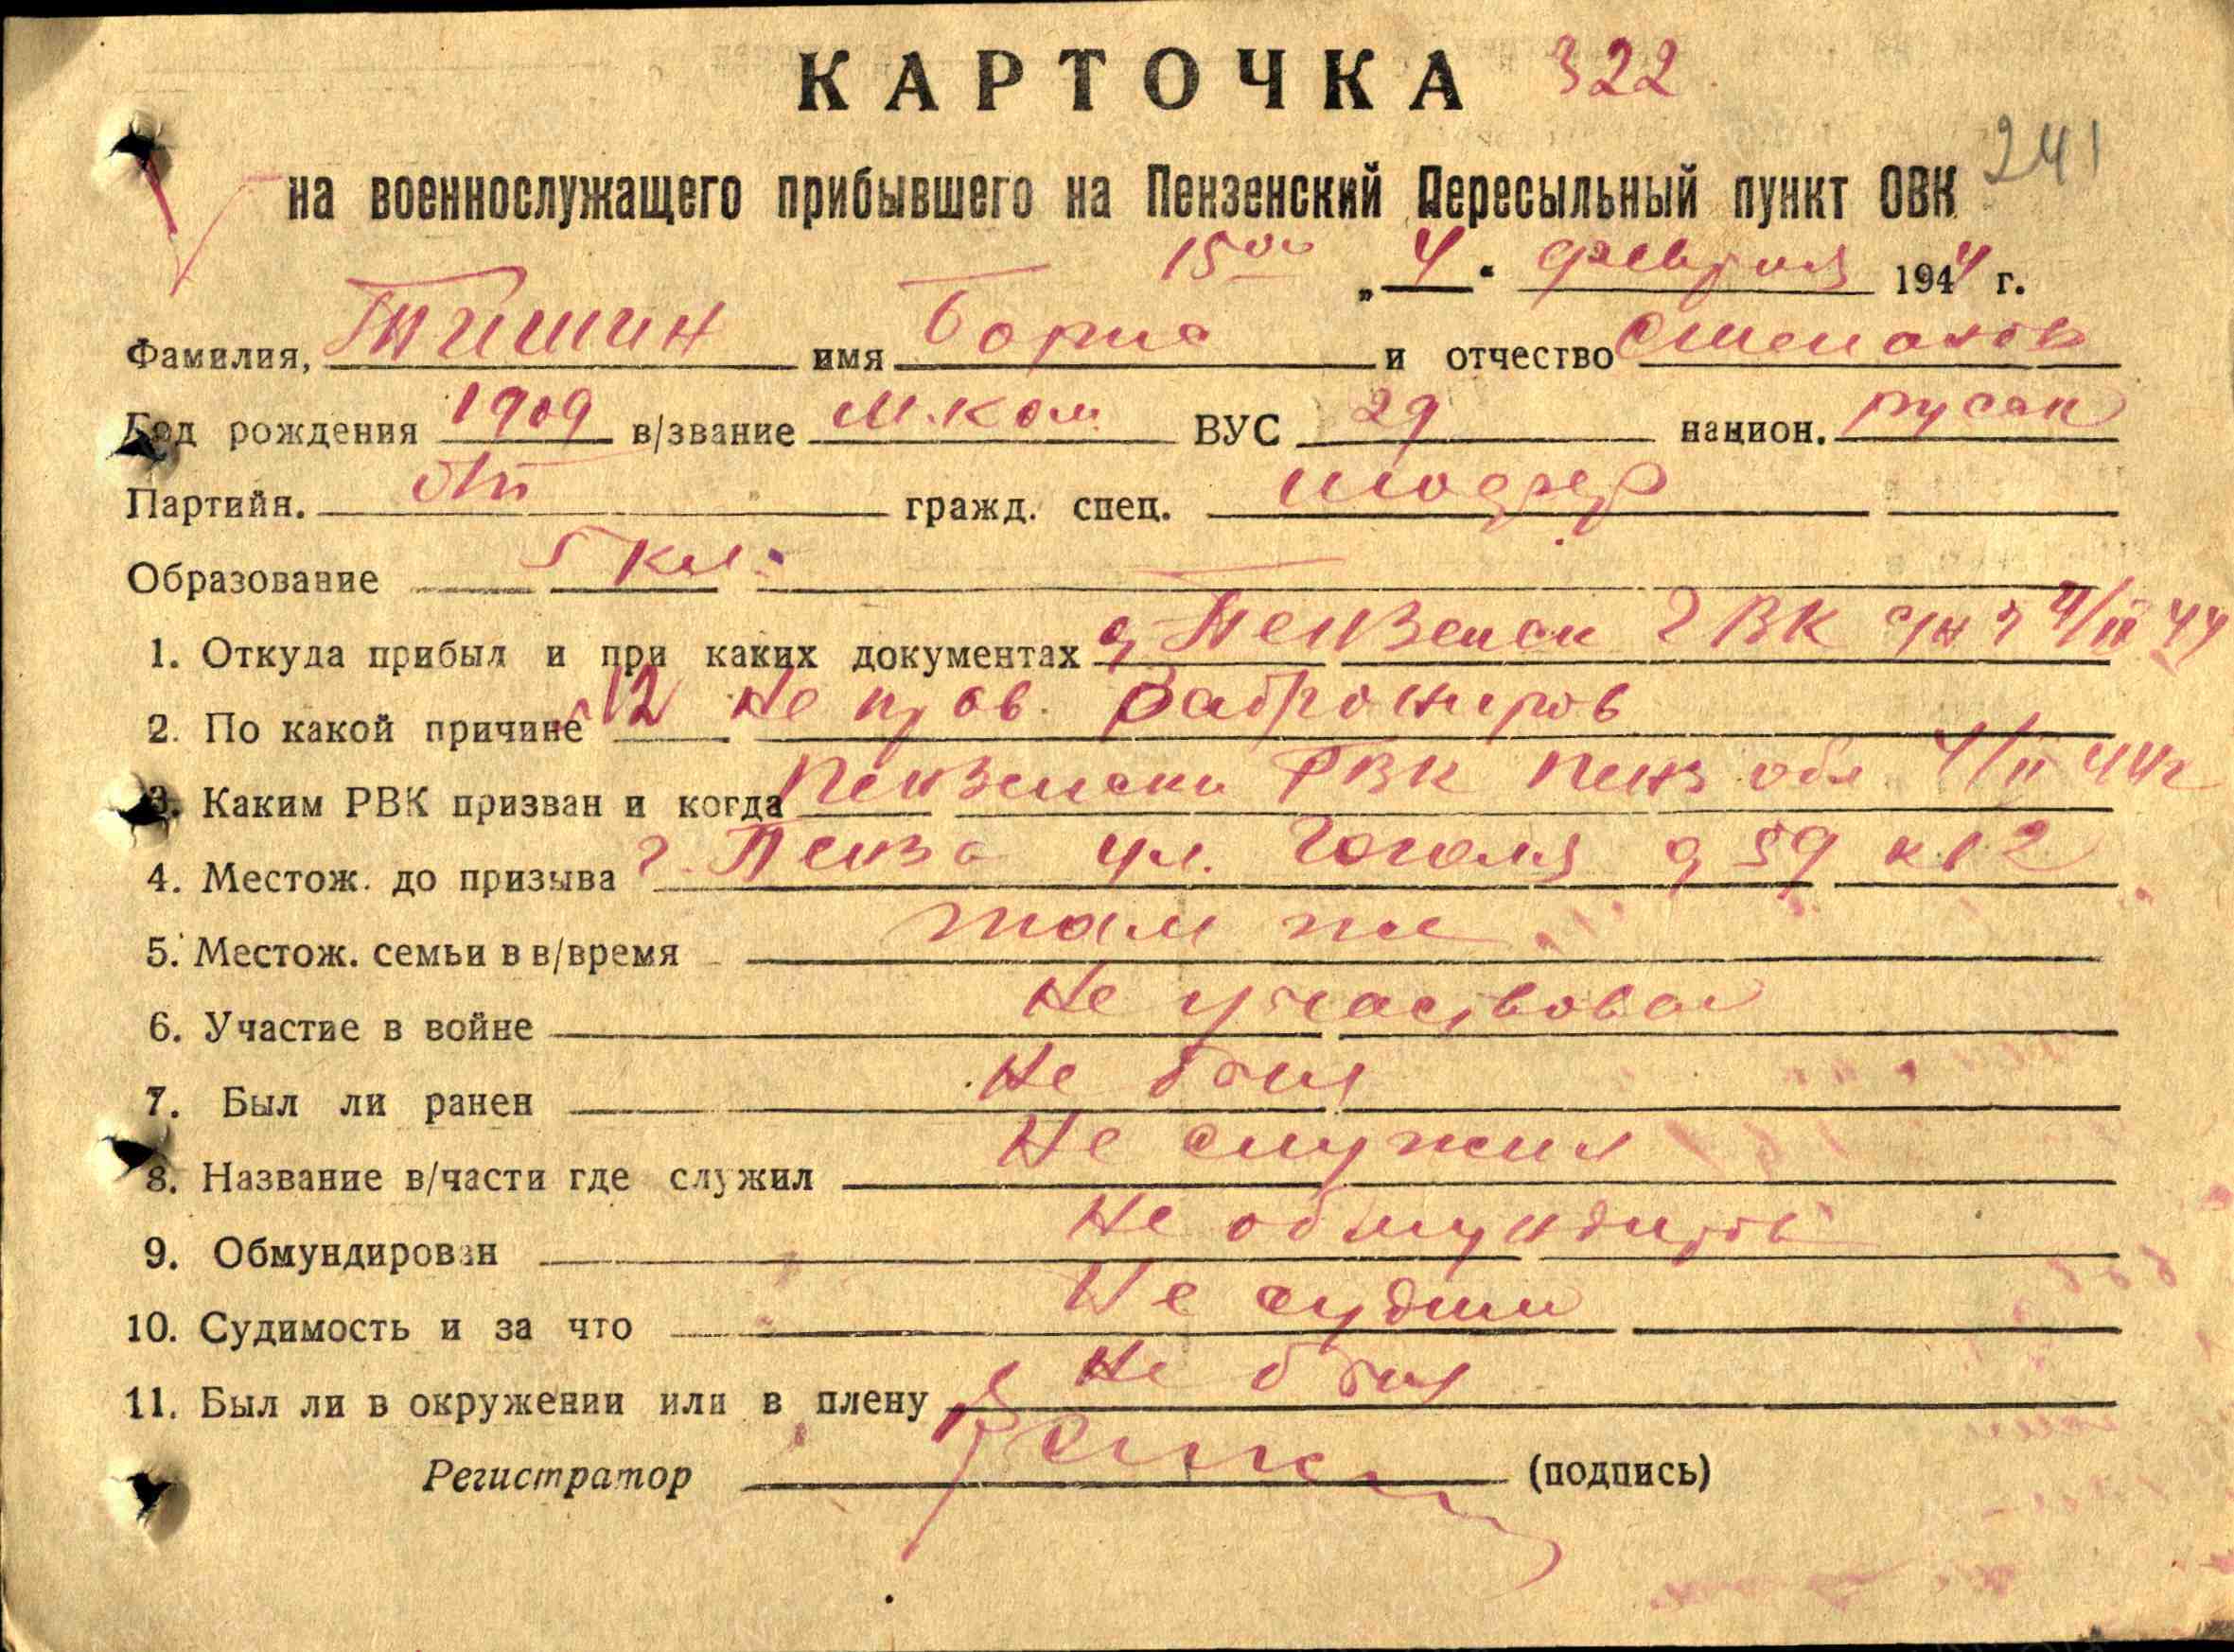 КАРТОЧКА 322
241
на военнослужащего прибывшего на Пензенский Пересыльный пункт ОВК
15 00 „ 4 " февраля 1944 г.
Фамилия, Тишин имя Борис и отчество Степанов
Год рождения 1909 в/звание м.ком ВУС 29 национ. русск
Партийн. б/п гражд. спец. шофер
Образование 5 кл.
1. Откуда прибыл и при каких документах Пензенск ГВК 4/II 44
2. По какой причине №12 не прав. Заброниров
3. Каким РВК призван и когда Пензенски РВК Пенз обл 4/II 44г
4. Местож. до призыва г. Пенза ул. Гоголя д 59 кв 2
5. Местож. семьи в в/время там же
6. Участие в войне Не участвовал
7. Был ли ранен Не был
8. Название в/части где служил Не служил
9. Обмундирован Не обмундиров
10. Судимость и за что Не судим
11. Был ли в окружении или в плену Не был
Регистратор (подпись)